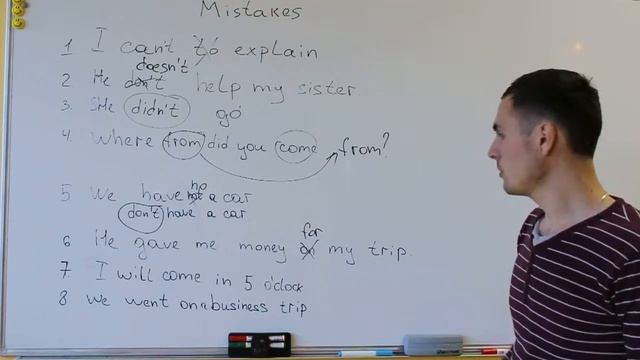 Mistakes
1 I can't to explain
doesn't
2 He don't help my sister.
3. SHe didn't go
4. Where from did you come from?
no
5 We have not a car
don't have a car
for
6 He gave me money on my trip.
7 I will come in 5 o'clock
8 We went on a business trip